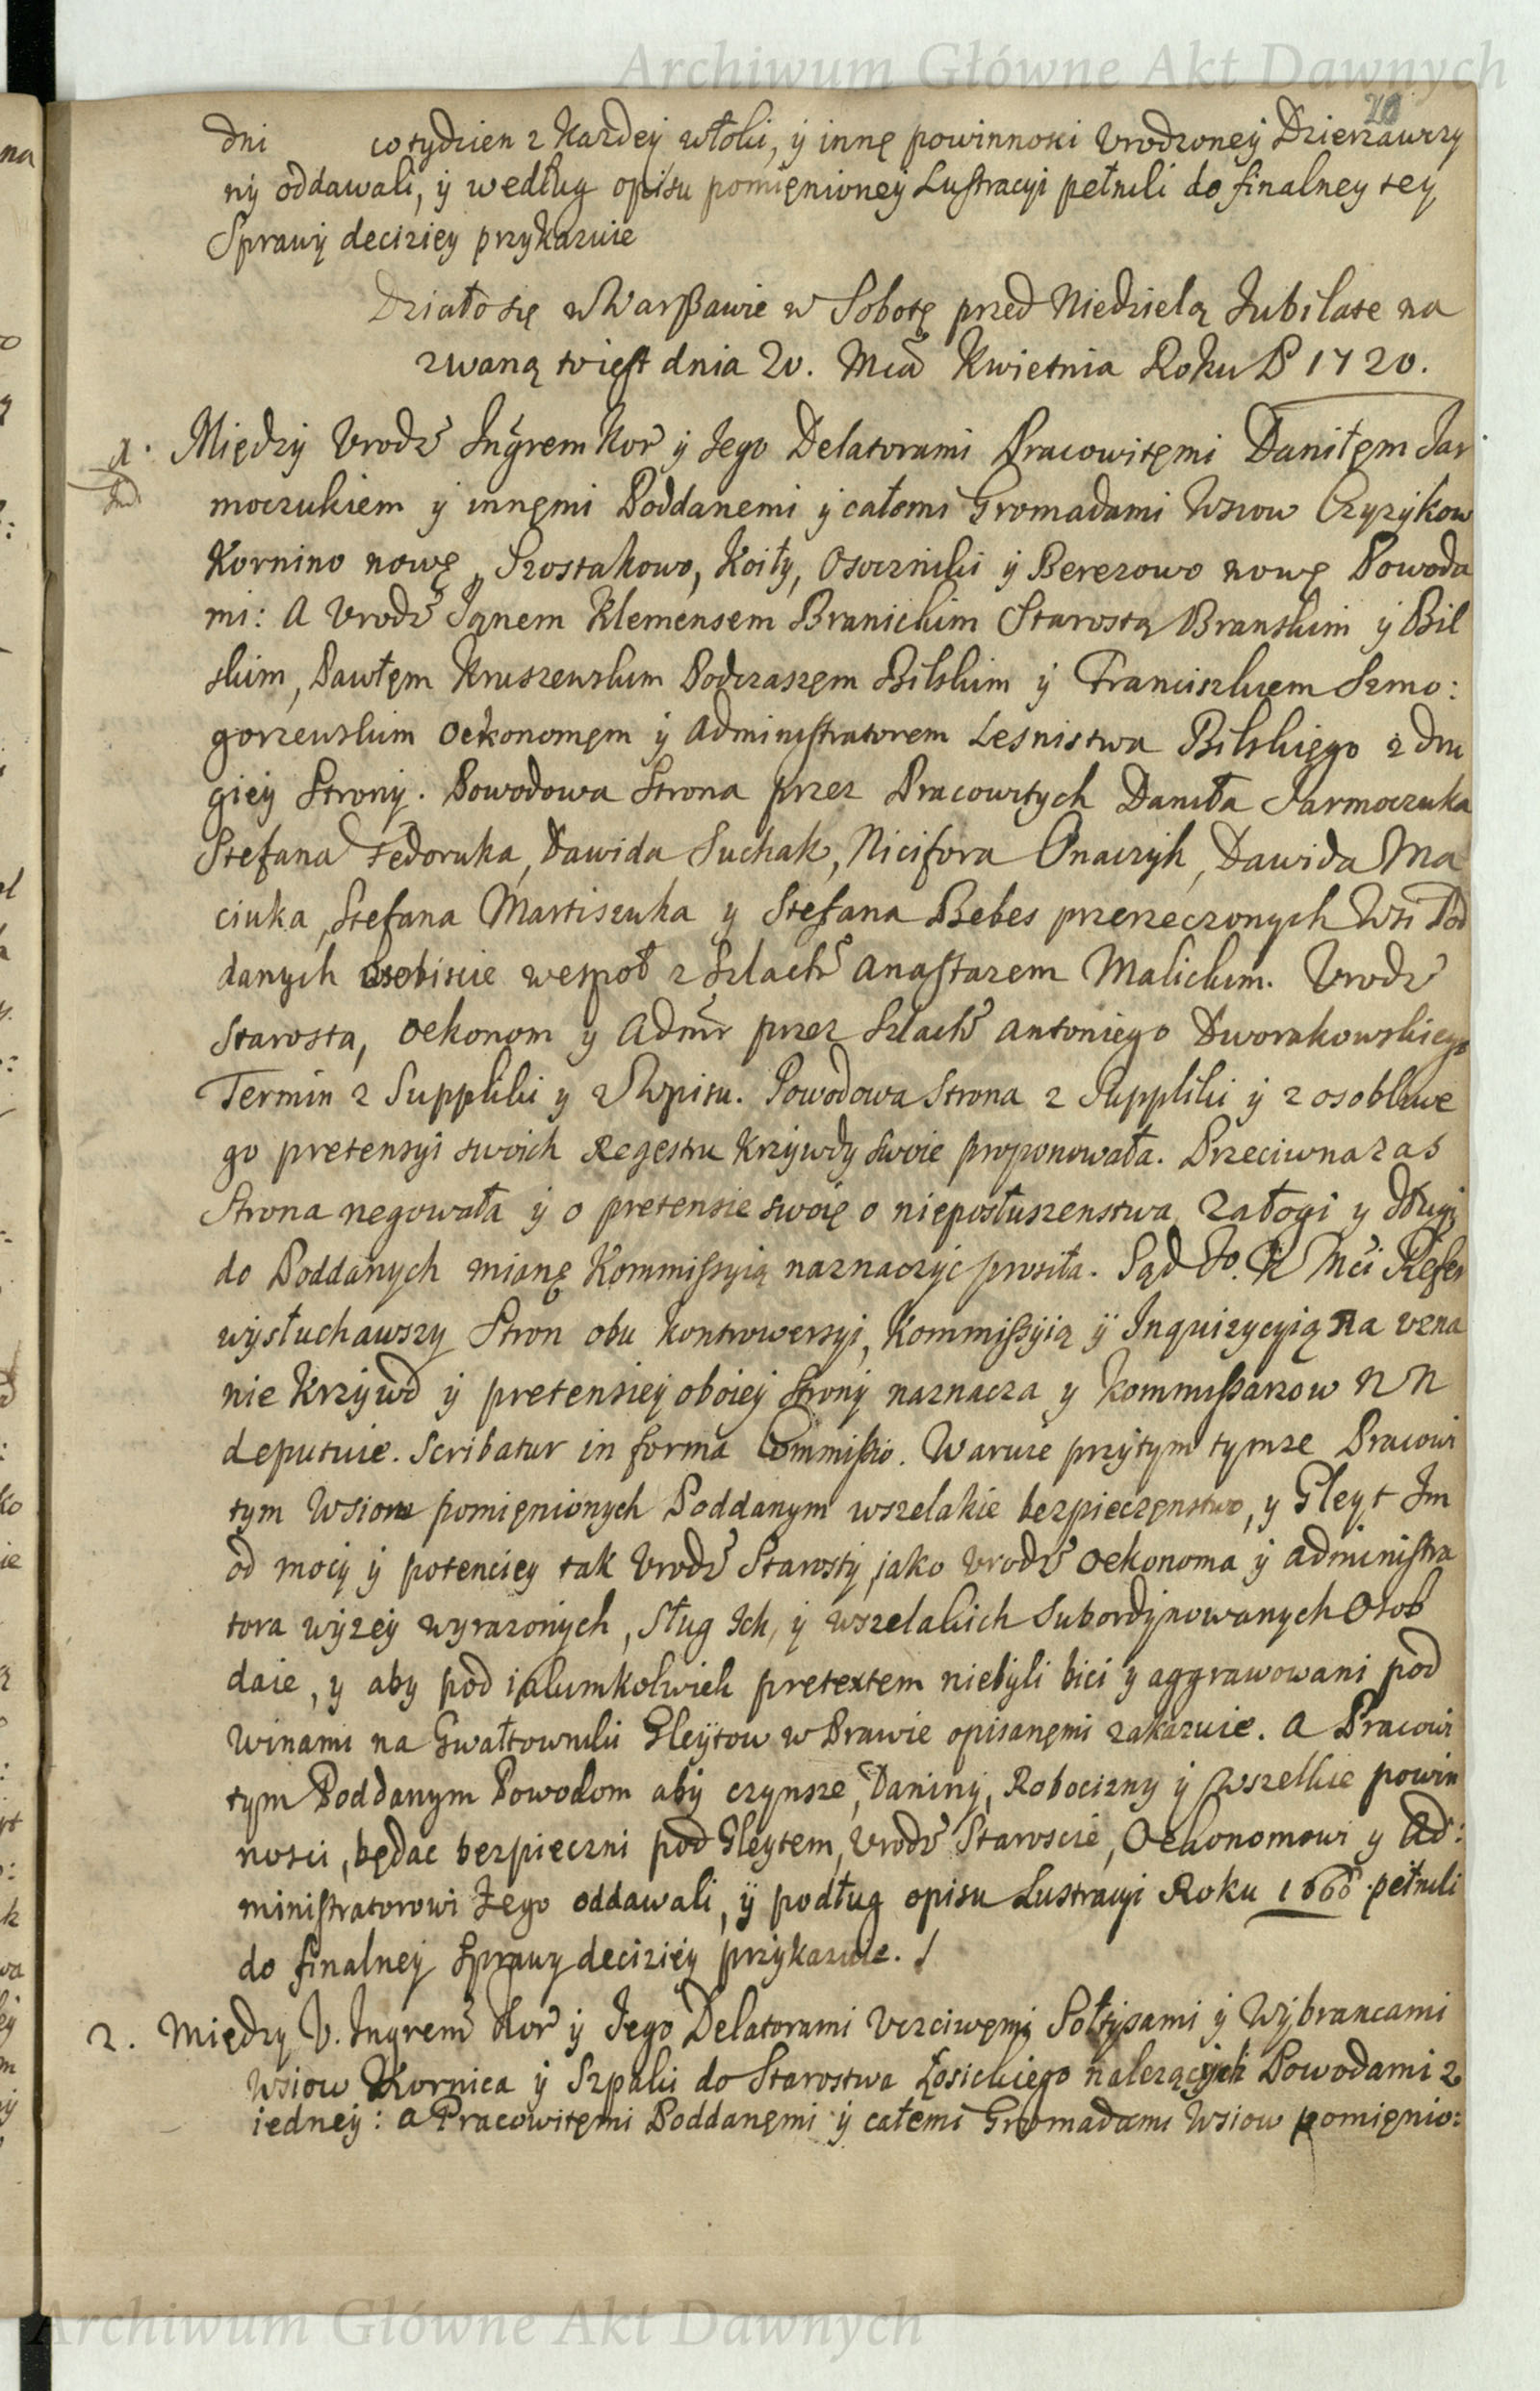 Archiwum Główne Akt Dawnych
20
dni co tydzien z każdey włoki, ÿ innę powinnosci Vrodzoney Dzierzawczy
nÿ oddawali, ÿ według opisu pomięnioney Lustracyi pełnili do finalney tey
Sprawÿ deciziey przykazuie
Działo się w Warszawie w Sobotę przed Niedzielą Jubilate na
zwaną to iest dnia 20. Mca Kwietnia Roku P 1720.
1. Międzÿ Vrodz Ingrem Kor ÿ Jego Delatorami Pracowitęmi Daniłęm Jar
moczukiem ÿ innęmi Poddanemi ÿ całemi Gromadami Wsiow Czyzykow
Kornino nowę, Szostakowo, Koiły, Osoczniki ÿ Berezowo nowę Powoda
mi: A Vrodz Janem Klemensem Branickim Starostą Branskim ÿ Bil
skim, Pawłęm Kruszewskim Podczaszęm Bilskim ÿ Franciszkiem Szmo:
gorzewskim Oekonomęm ÿ Administratorem Lesnistwa Bilskięgo z dru
giey Stronÿ. Powodowa Strona przez Pracowitych Daniła Jarmoczuka
Stefana Fedoruka, Dawida Suchak, Nicifora Onaczyk, Dawida Ma
ciuka, Stefana Martiszuka y Stefana Bebes przerzeczonych Wsi Pod
danych osobiscie wespoł z Szlach Anastazem Malickim. Vrodz
Starosta, Oekonom y Admr przez Szlach Antoniego Dworakowskiego
Termin z Suppliki y z Wpisu. Powodowa Strona z Suppliki ÿ z osobliwe
go pretensyi swoich Regestru Krzywdy swoie proponowała. Przeciwna zas
Strona negowała ÿ o pretensie swoię o nieposłuszenstwa, załogi y długi
do Poddanych mianę Kommissyią naznaczyc prosiła. Sąd Jo. K Mci Refer
wÿsłuchawszy Stron obu kontrowersyi, Kommissyią ÿ Inquizycyią na uzna
nie Krzywd ÿ pretensiey oboiey Stronÿ naznacza y Kommissarzow N N
deputuie. Scribatur in forma Commissio. Waruie przytym tymze Pracowi
tym Wsiow pomięnionych Poddanym wszelakie bezpieczęnstwo, y Gleyt Im
od mocÿ ÿ potenciey tak Vrodz Starostÿ, jako Vrodz Oekonoma ÿ Administra
tora wyzey wyrazonÿch, Sług Ich, ÿ wszelakich Subordynowanych Osob
daie, y aby pod iakimkolwiek pretextem niebyli bici ÿ aggrawowani pod
winami na Gwałtowniki Gleÿtow w Prawie opisanęmi zakazuie. A Pracowi
tym Poddanym Powodom abÿ czynsze, Daninÿ, Robocizny ÿ wszelkie powin
nosci, będac bezpieczni pod Gleytem, Vrodz Staroscie, Oekonomowi y Ad:
ministratorowi Jego oddawali, ÿ podług opisu Lustracyi Roku 1660 pełnili
do finalney Sprawy deciziey przykazuie. /
2. Między V. Ingrem Kor ÿ Jego Delatorami Vczciwęmi Sołtysami ÿ Wybrancami
Wsiow Kornica ÿ Szpaki do Starostwa Łosickiego nalezących Powodami z
iedneÿ: a Pracowitęmi Poddanęmi ÿ całemi Gromadami Wsiow pomięnio:
Archiwum Główne Akt Dawnych